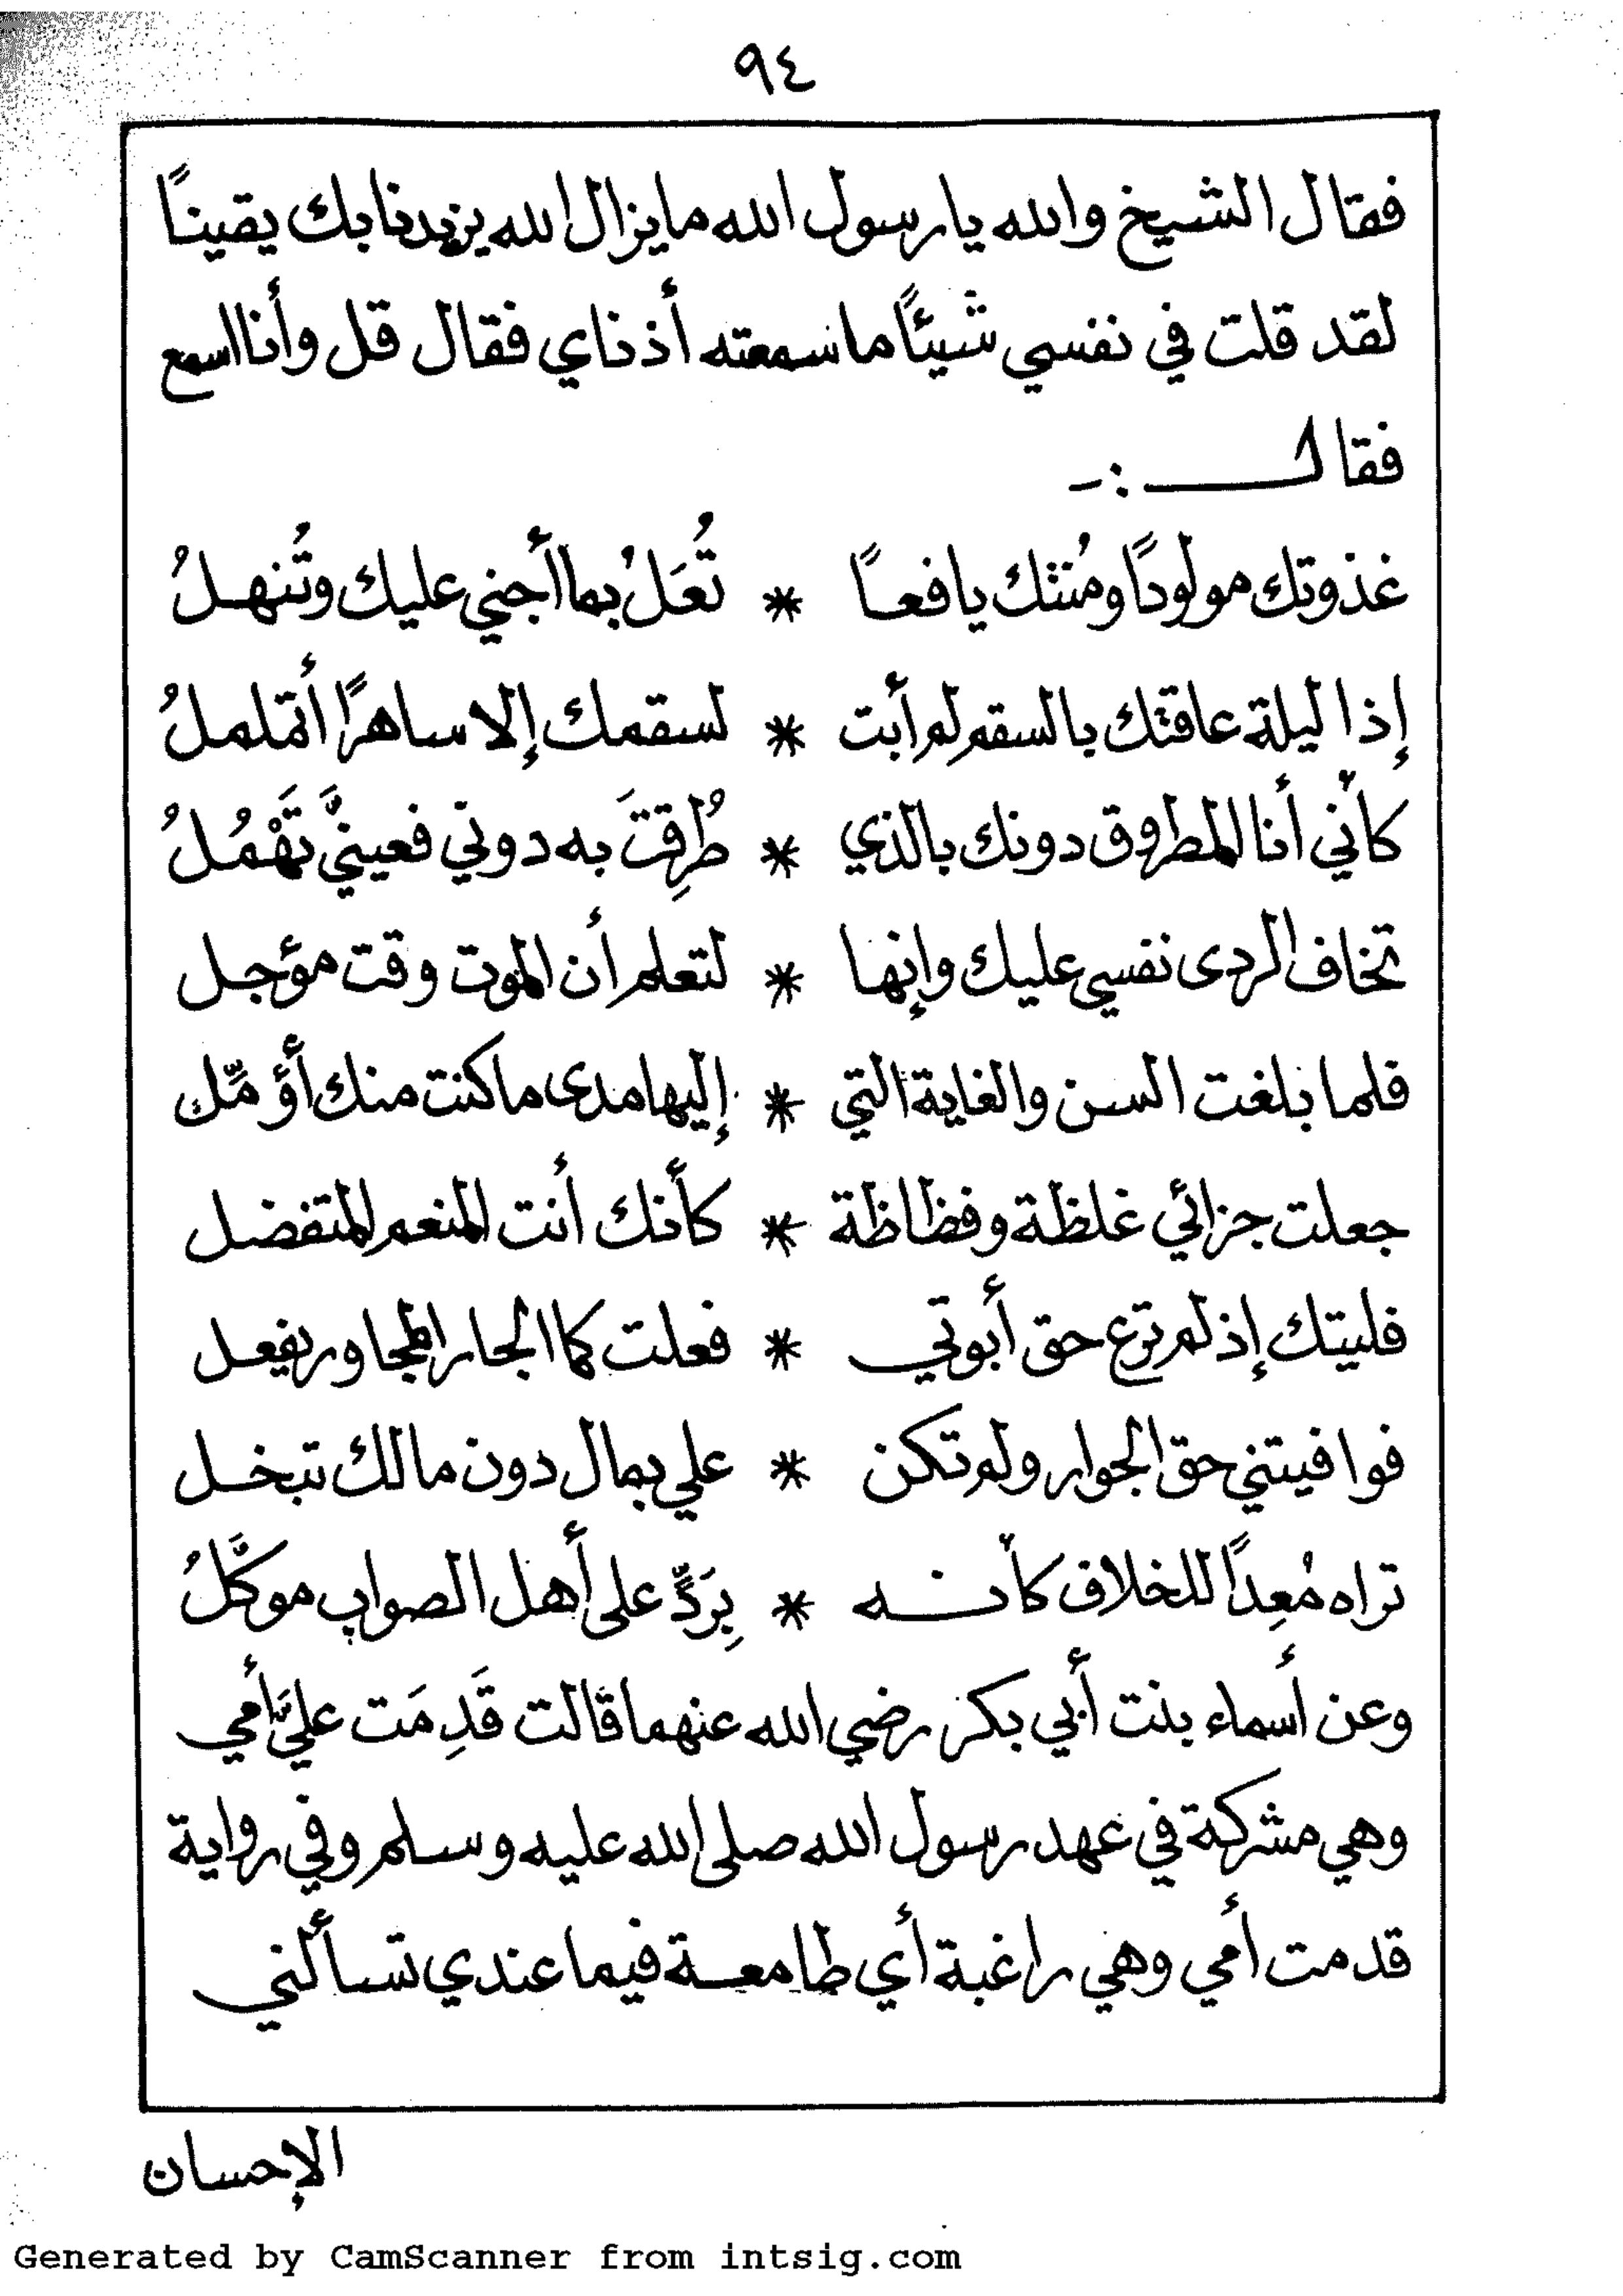 ٩٤
فقال الشيخ والله يا رسول الله ما يزال الله يزيدنا بك يقينًا
لقد قلت في نفسي شيئًا ما سمعته أذناي فقال قل وأنا اسمع
فقال :-
غذوتك مولودًا ومُنتك يافعًا * تُعَلُ بما أجني عليك وتُنهلُ
إذا ليلة عاقتك بالسقم لم أبت * لسقمك إلا ساهرًا أتململُ
كأني أنا المطروق دونك بالذي * طُرِقتَ به دوني فعينيَّ تَهْمُلُ
تخاف الردى نفسي عليك وإنها * لتعلم أن الموت وقت مؤجل
فلما بلغت السن والغاية التي * إليها مدى ما كنت منك أؤمِّل
جعلت جزائي غلظة وفظاظة * كأنك أنت المنعم المتفضل
فليتك إذ لم ترع حق أبوتي * فعلت كما الجار المجاور يفعل
فوافيتني حق الجوار ولم تكن * علي بمال دون مالك تبخل
تراه مُعِدًا للخلاف كأنه * بِرَدٍّ على أهل الصواب موكَّلُ
وعن أسماء بنت أبي بكر رضي الله عنهما قالت قَدِمَت عليَّ أمي
وهي مشركة في عهد رسول الله صلى الله عليه وسلم وفي رواية
قدمت أمي وهي راغبة أي طامعة فيما عندي تسألني
الإحسان
Generated by CamScanner from intsig.com